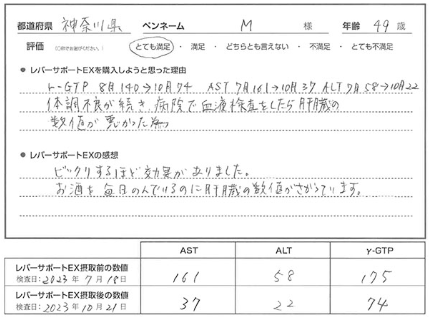 都道府県 神奈川県 ペンネーム M 様 年齢 49 歳
評価 とても満足 ・ 満足 ・ どちらとも言えない ・ 不満足 ・ とても不満足
● レバーサポートEXを購入しようと思った理由
γ-GTP 8月140→10月74 AST 7月161→10月37 ALT 7月58→10月22
体調不良が続き、病院で血液検査をしたら肝臓の
数値が悪かった為
● レバーサポートEXの感想
ビックリするほど効果がありました。
お酒を毎日のんでいるのに肝臓の数値がさがっています。
AST ALT γ-GTP
レバーサポートEX摂取前の数値
検査日: 2023年 7月 18日 161 58 175
レバーサポートEX摂取後の数値
検査日: 2023年 10月 21日 37 22 74